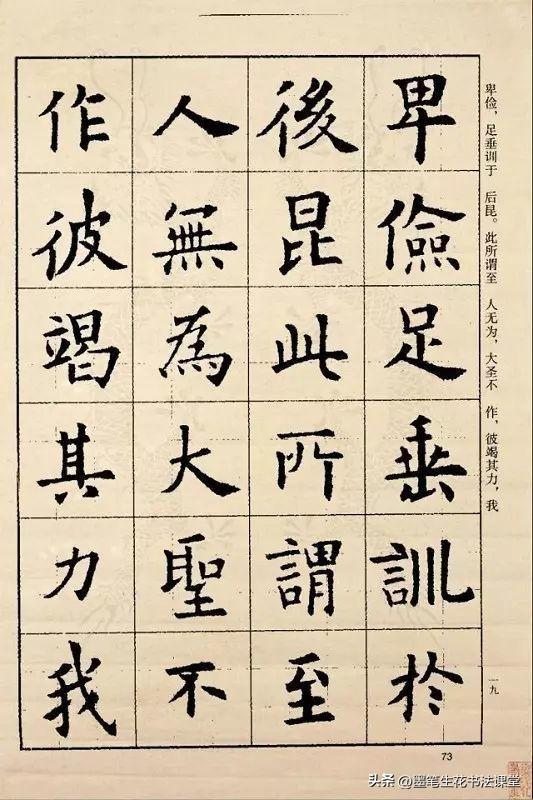 卑儉足垂訓於
後昆此所謂至
人無為大聖不
作彼竭其力我
卑俭，足垂训于 后昆。此所谓至 人无为，大圣不 作，彼竭其力，我
一九
73
头条@墨笔生花书法课堂